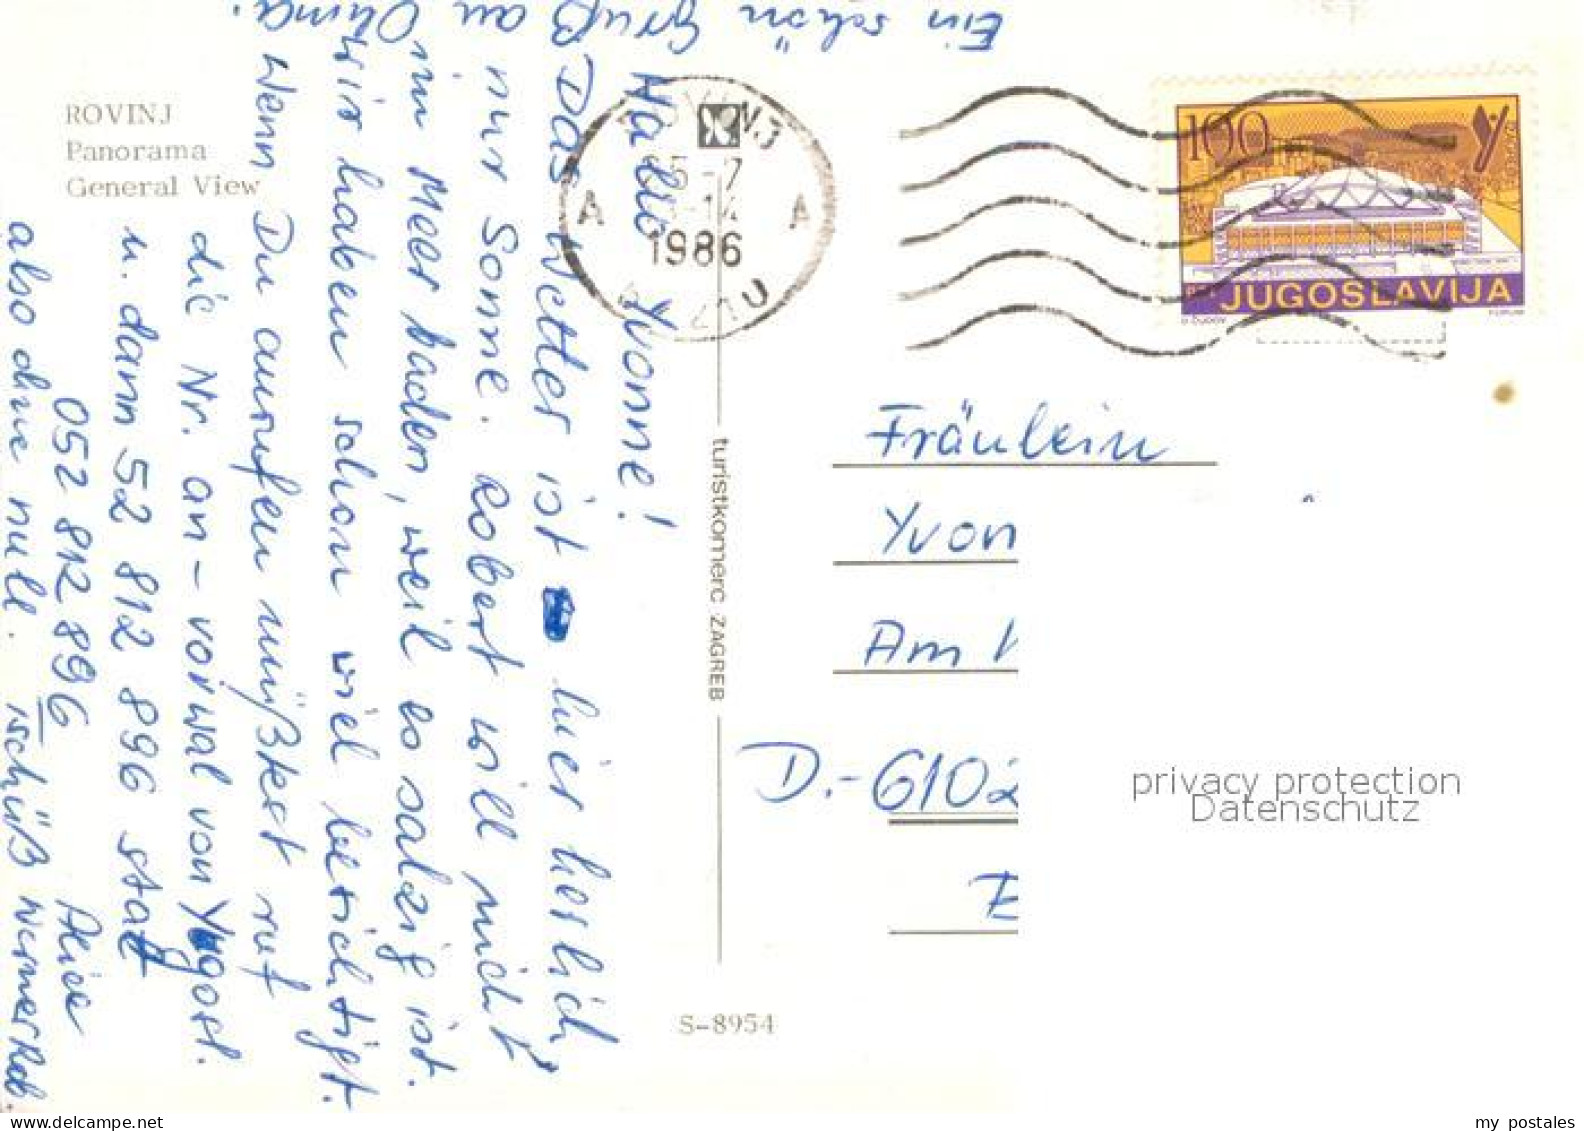 ROVINJ
Panorama
General View
Hallo Yvonne!
Das Wetter ist hier herlich,
nur Sonne. Robert will nicht
im Meer baden, weil es salzig ist.
wir haben schon viel besichtigt.
Wenn Du anrufen müßtest ruf
die Nr. an - vorwal von Yugosl.
u. dann 52 812 896 statt
052 812 896 Alice
also ohne null. Tschüß Werner Rob.
Ein schön
Gruß
an
Oma.
ROVINJ
5-7
1986
A A
turistkomerc ZAGREB
S-8954
100
JUGOSLAVIJA
FORUM
Fräulein
Yvon
Am
D.-6102
privacy protection
Datenschutz
my postales